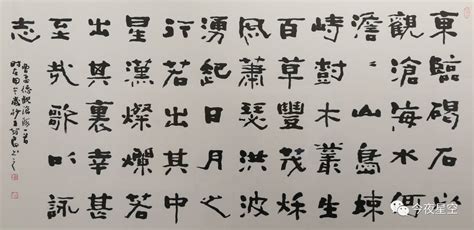 東臨碣石以
觀滄海水何
澹〻山島竦
峙樹木叢生
百草豐茂秋
風蕭瑟洪波
湧起日月之
行若出其中
星漢燦爛若
出其裏幸甚
至哉歌以詠
志
曹孟德觀滄海一首
今夜星空